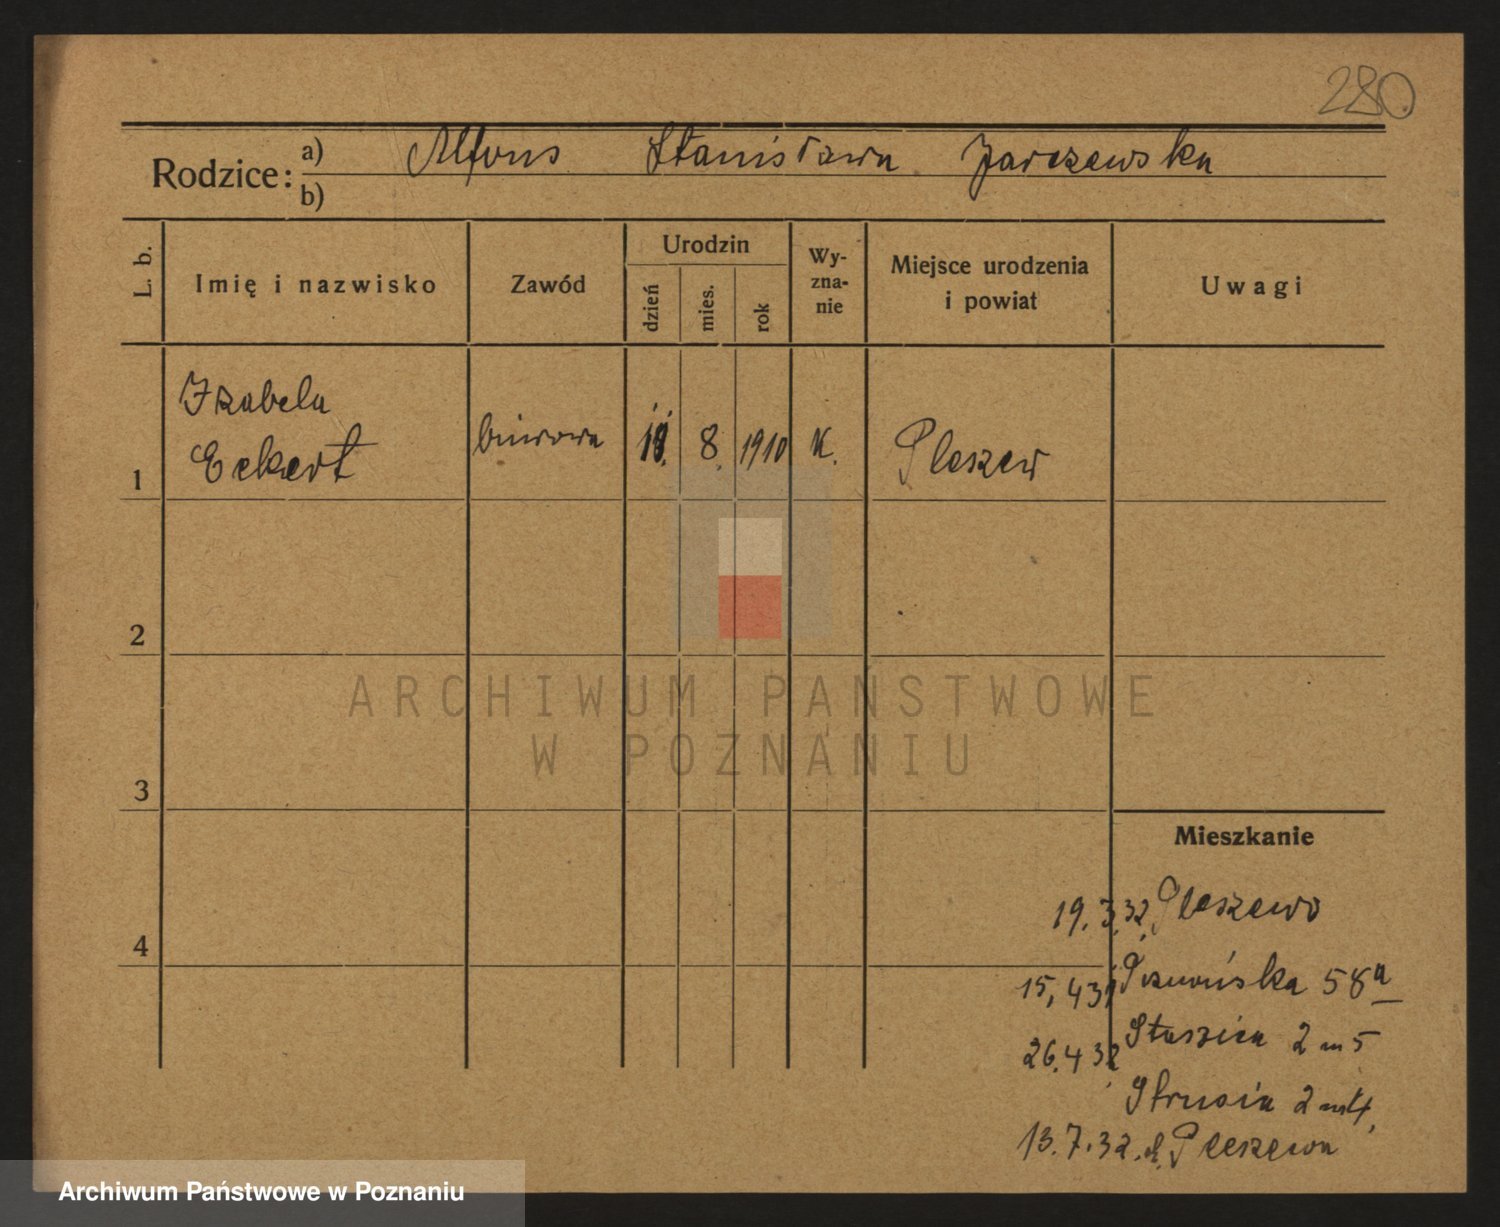 280
Rodzice: a) Alfons Stanisława Jarczewska
b)
L. b.
Imię i nazwisko
Zawód
Urodzin
dzień
mies.
rok
Wy-
zna-
nie
Miejsce urodzenia
i powiat
Uwagi
1
Izabela
Eckert
biurowa
8.
1910
K.
Pleszew
2
3
4
Mieszkanie
19.3.32. Pleszewo
15.4 31 Poznańska 58a
26.4 32 Staszica 2 m 5
Strusia 2 m 4.
13.7.32. d. Pleszewa
ARCHIWUM PAŃSTWOWE
W POZNANIU
Archiwum Państwowe w Poznaniu